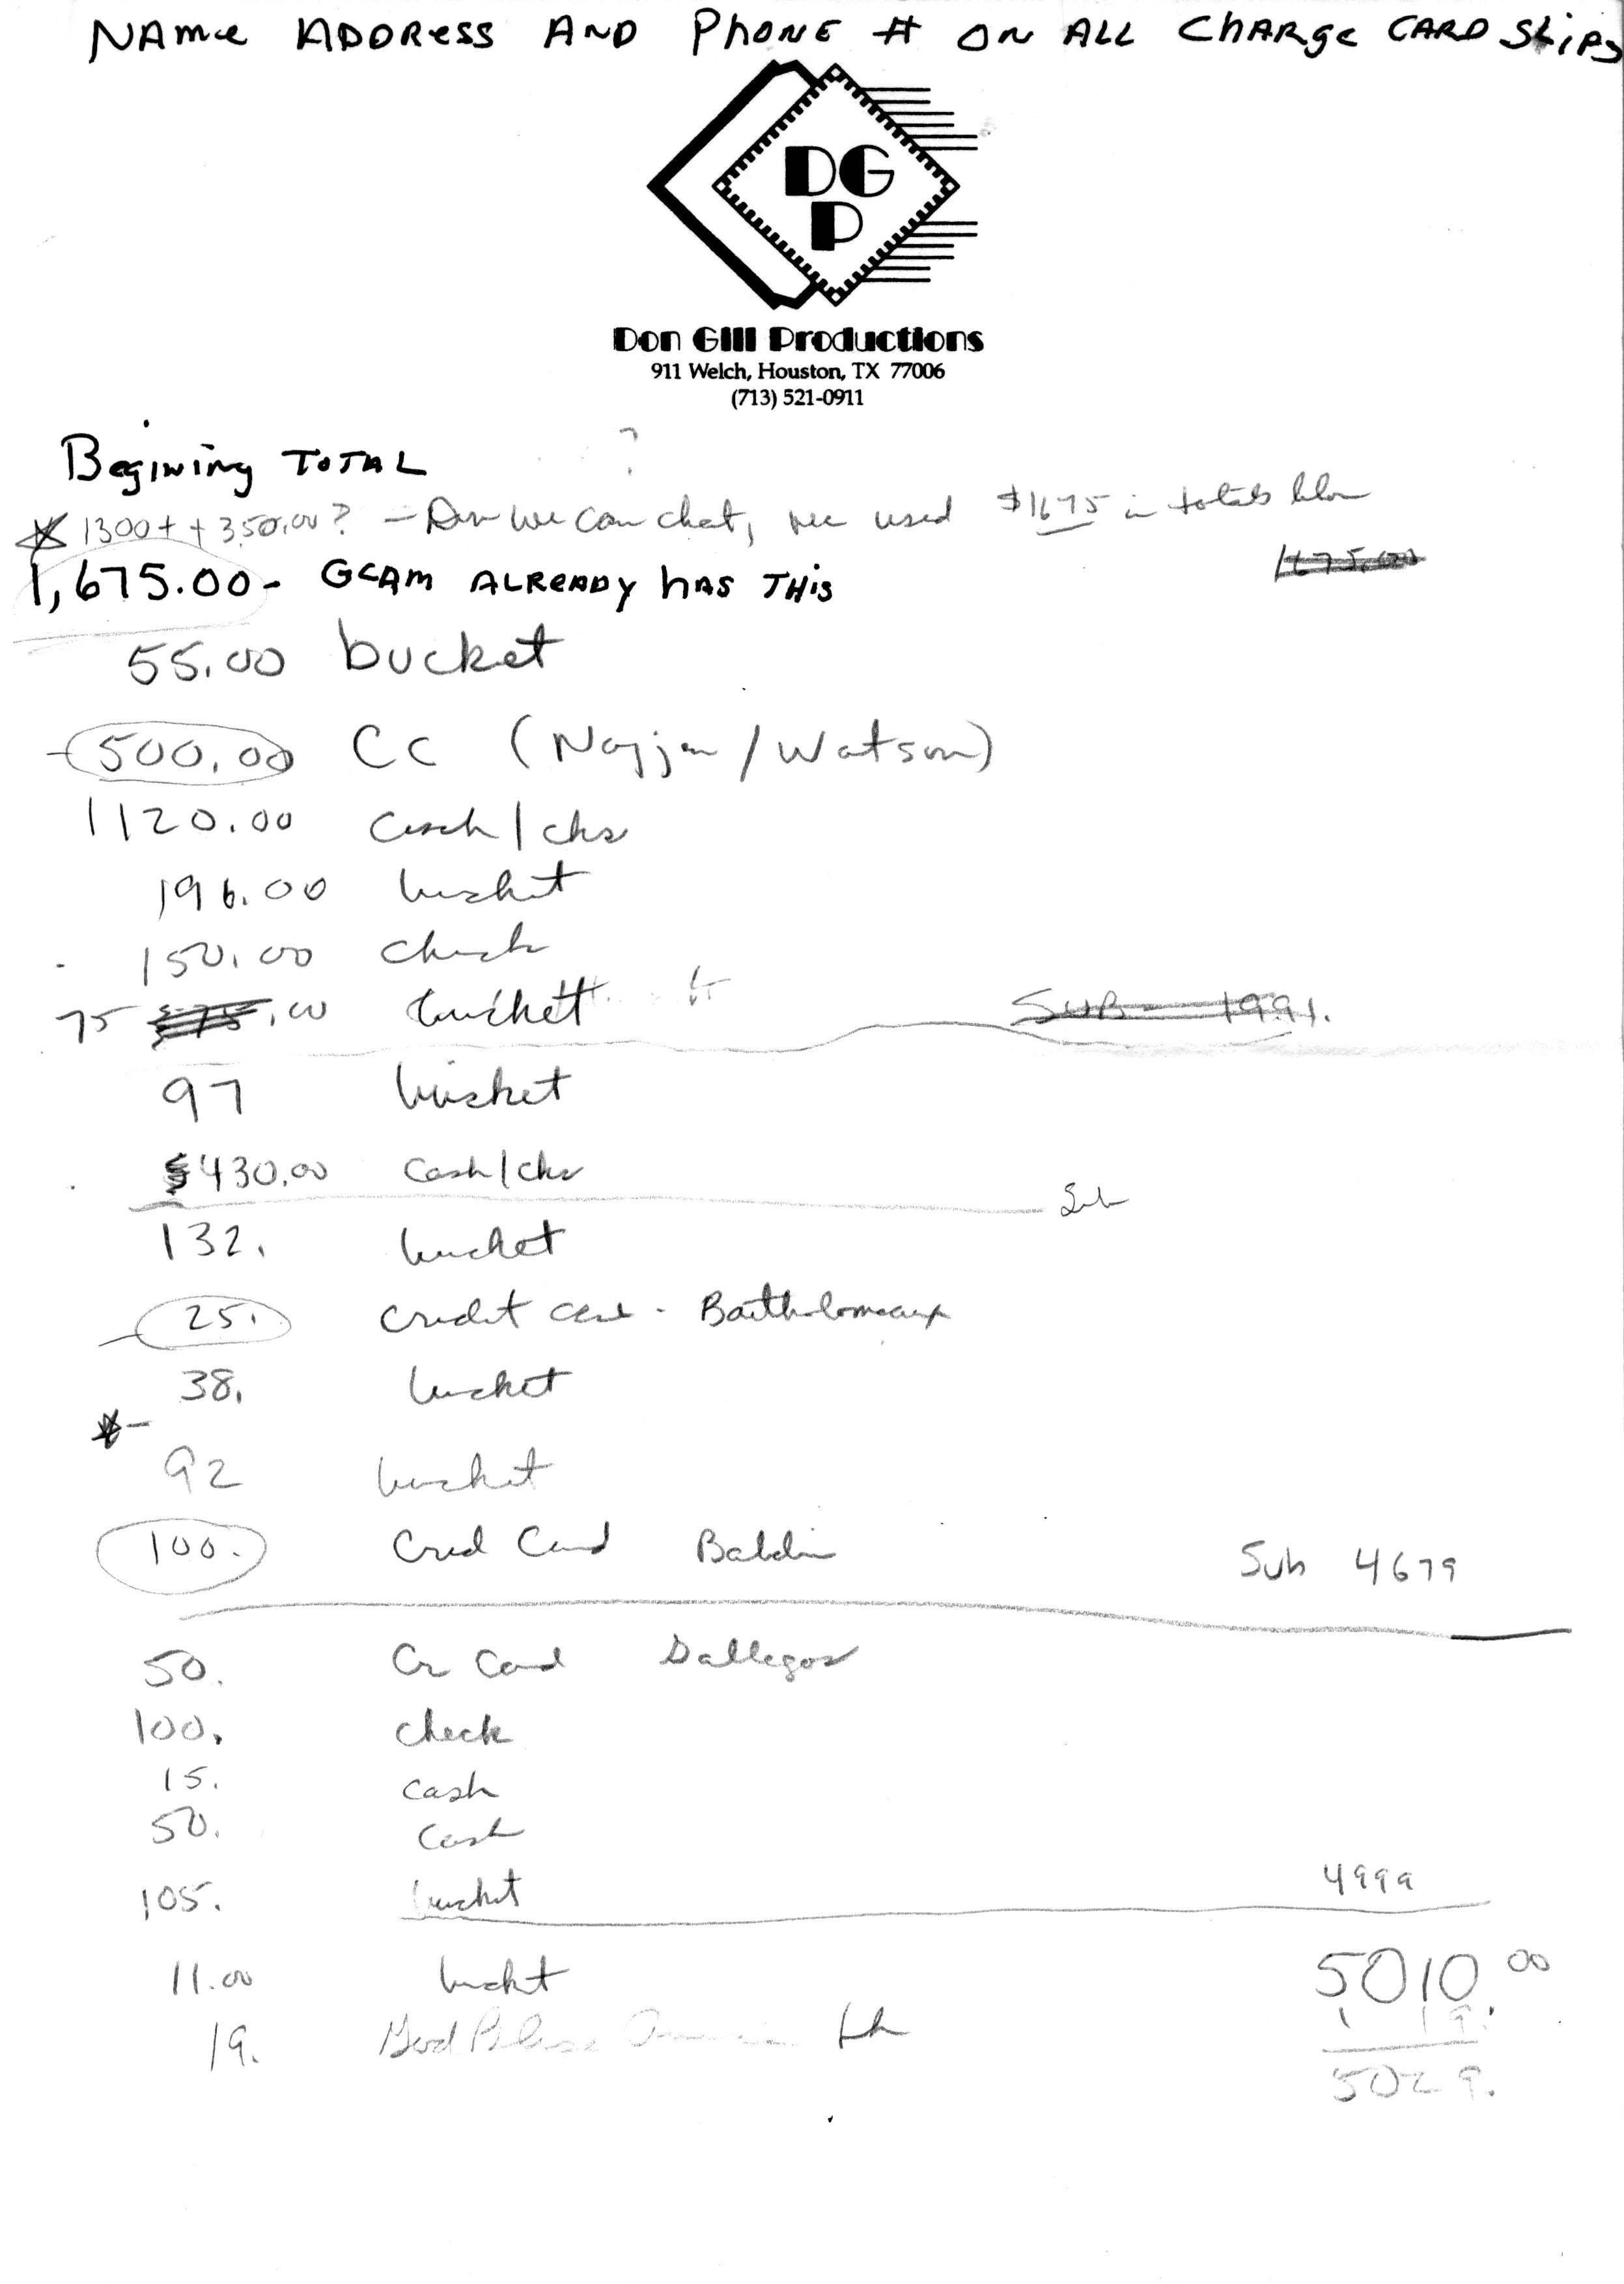 NAME ADDRESS AND PHONE # ON ALL CHARGE CARD SLIPS
DG
P
Don Gill Productions
911 Welch, Houston, TX 77006
(713) 521-0911
Begining TOTAL
?
1300+ + 350.00? - Don we can chat, we used $1675 in totals
1675.00
1,675.00- GCAM ALREADY HAS THIS
55.00 bucket
500.00 CC (Najjar/Watson)
1120.00 Cash/cks
196.00 bucket
150.00 check
75 .00 buckett
SUB 1991.
97 bucket
$430.00 cash/cks
Sub
132. bucket
25. credit card - Bartholomeaux
38. bucket
92 bucket
100. Cred Card Sub 4679
50. Cr Card Gallegos
100. check
15. cash
50. cash
105. bucket 4999
11.00 buckt 5010 00
19. God Bless 19.
5029.